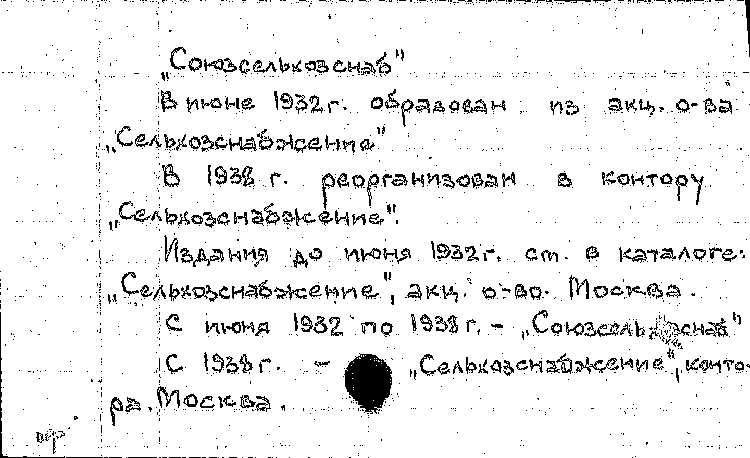 „Союзсельхозснаб"
В июне 1932 г. образован из акц. о-ва
„Сельхозснабжение"
В 1938 г. реорганизован в контору
„Сельхозснабжение".
Издания до июня 1932 г. см. в каталоге:
„Сельхозснабжение", акц. о-во. Москва.
С июня 1932 по 1938 г. – „Союзсельхозснаб"
С 1938 г. – „Сельхозснабжение", конто-
ра. Москва.